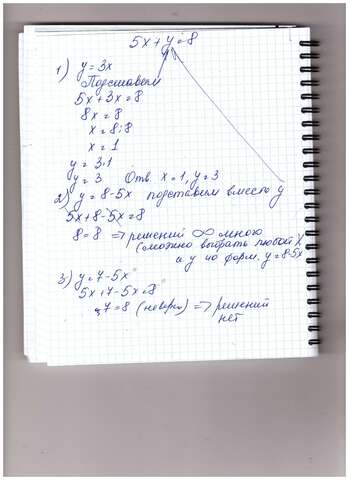 5x + y = 8
1) y = 3x
Подставим
5x + 3x = 8
8x = 8
x = 8:8
x = 1
y = 3·1
y = 3 Отв. x = 1, y = 3
2) y = 8-5x подставим вместо y
5x + 8 - 5x = 8
8 = 8 => решений ∞ много
(можно выбрать любой x
а y по форм. y = 8-5x
3) y = 7-5x
5x + 7 - 5x = 8
7 = 8 (неверн) => решений
нет